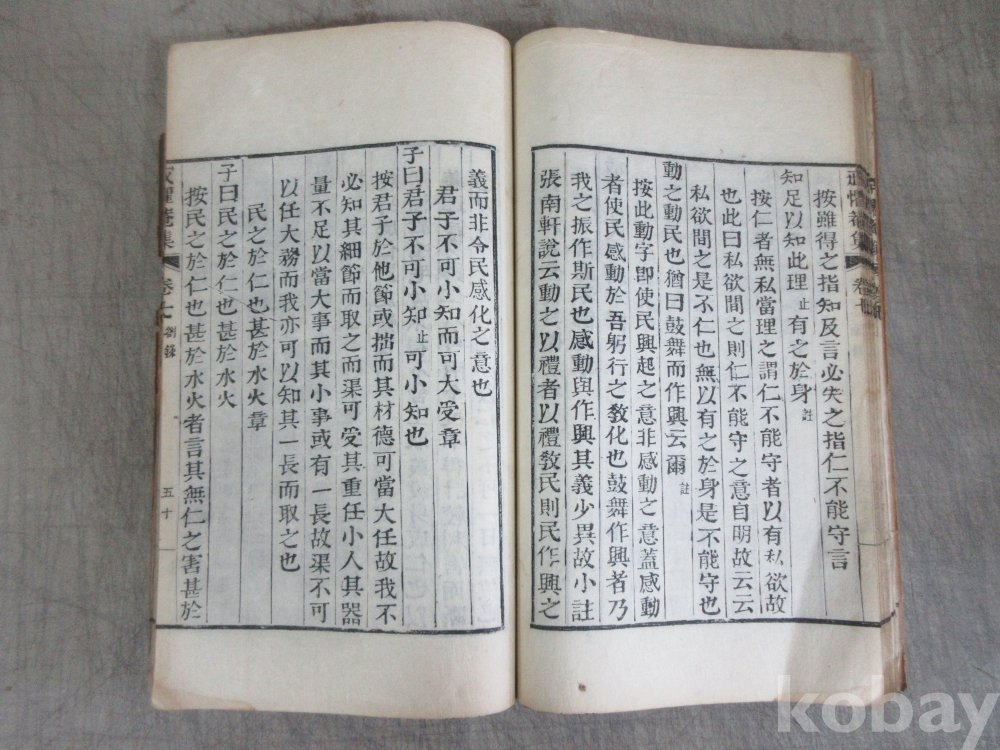 按雖得之指知及言必失之指仁不能守言
知足以知此理止有之於身註
按仁者無私當理之謂仁不能守者以有私欲故
也此曰私欲間之則仁不能守之意自明故云云
私欲間之是不仁也無以有之於身是不能守也
動之動民也猶曰鼓舞而作興云爾註
按此動字即使民興起之意非感動之意蓋感動
者使民感動於吾躬行之教化也鼓舞作興者乃
我之振作斯民也感動與作興其義少異故小註
張南軒說云動之以禮者以禮教民則民作興之
義而非令民感化之意也
君子不可小知而可大受章
子曰君子不可小知止可小知也
按君子於他節或拙而其材德可當大任故我不
必知其細節而取之而渠可受其重任小人其器
量不足以當大事而其小事或有一長故渠不可
以任大務而我亦可以知其一長而取之也
民之於仁也甚於水火章
子曰民之於仁也甚於水火
按民之於仁也甚於水火者言其無仁之害甚於
集 卷 劄錄 五十
kobay